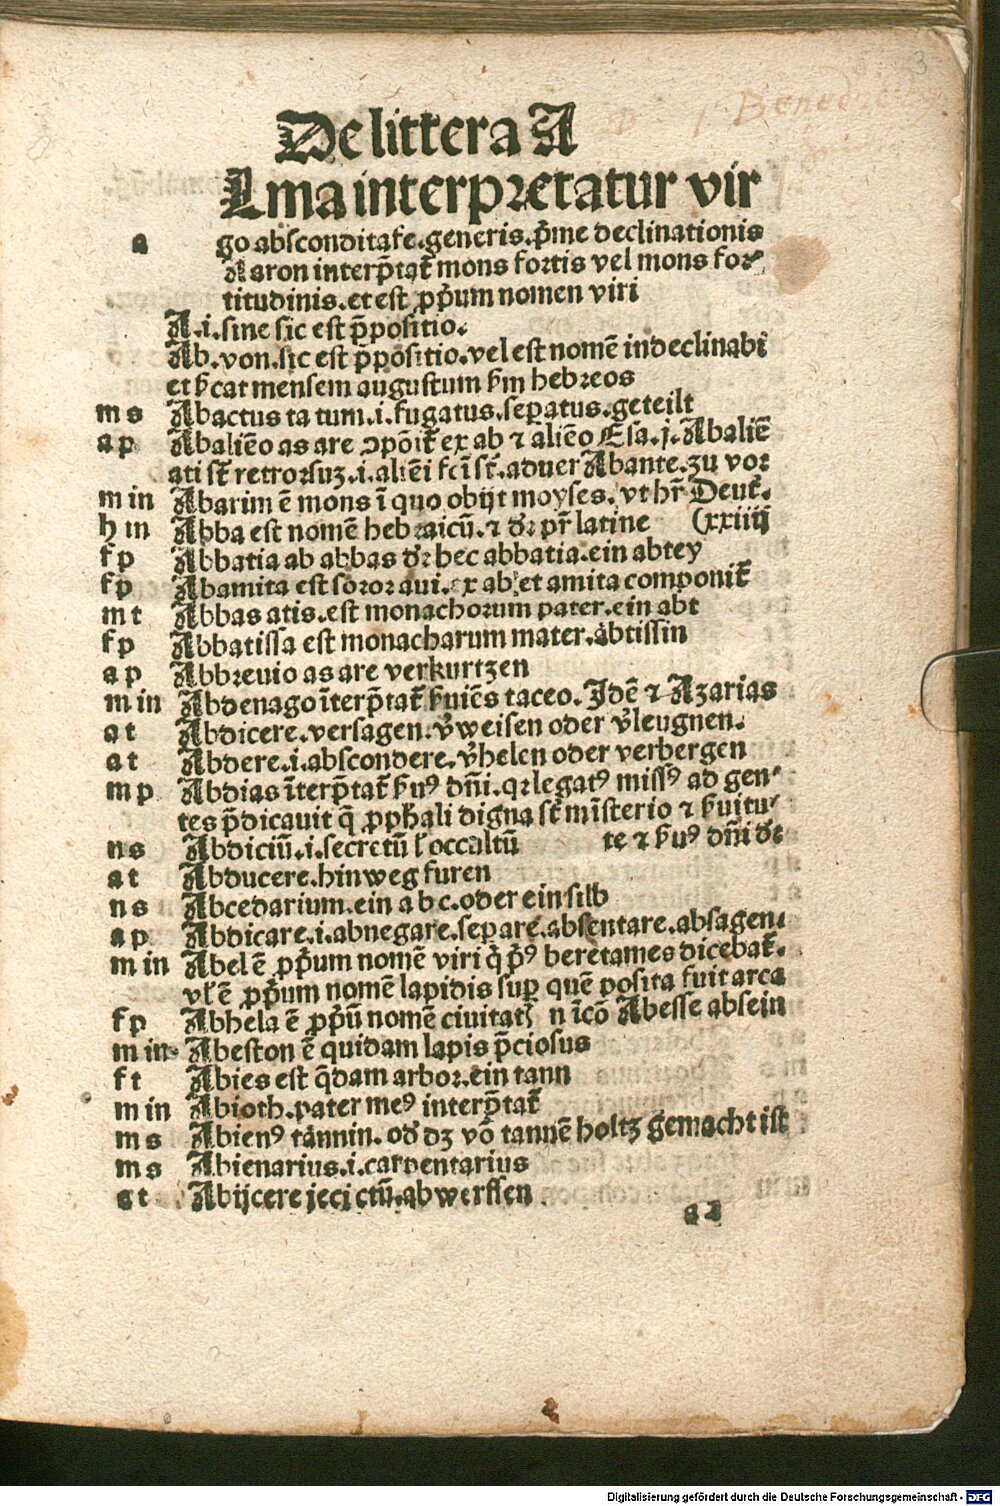 3
Benedic
De littera A
Lma interpretatur vir
a go abscondita fe.generis.p̄me declinationis
Aaron interp̄tat᷑ mons fortis vel mons for⸗
titudinis.et est ꝓpriū nomen viri
A.i.sine sic est p̄positio.
Ab.von.sic est p̄positio.vel est nomē indeclinabi
et ẜcat mensem augustum ẜm hebreos
m s Abactus ta tum.i.fugatus.seꝑatus.geteilt
a p Abaliēo as are ↄpōit᷑ ex ab ⁊ aliēo Esa.j.Abaliē
ati st̄ retrorsuꝫ.i.aliēi fc̄i st̄.aduer Abante.zu vor
m in Abarim ē mons ī quo obijt moyses.vt hr̄ Deut̄.
h in Abba est nomē hebraicū.⁊ dr̄ pr̄ latine (xxiiij
f p Abbatia ab abbas dr̄ hec abbatia.ein abtey
f p Abamita est soror aui.ex ab et amita componit᷑
m t Abbas atis.est monachorum pater.ein abt
f p Abbatissa est monacharum mater.åbtissin
a p Abbreuio as are verkurtzen
m in Abdenago īterp̄tat᷑ ẜuiēs taceo.Idē ⁊ Azarias
a t Abdicere.versagen.v̄weisen oder v̄leugnen.
a t Abdere.i.abscondere.v̄helen oder verbergen
m p Abdias īterp̄tat᷑ ẜuꝰ dn̄i.qꝛ legatꝰ missꝰ ad gen⸗
tes p̄dicauit q̄ ꝓpħali digna st̄ mīsterio ⁊ ẜuitu⸗
n s Abdiciū.i.secretū ł occultū te ⁊ ẜuꝰ dn̄i dr̄
a t Abducere.hinweg furen
n s Abcedarium.ein a b c.oder ein silb
a p Abdicare.i.abnegare.seꝑare.absentare.absagen.
m in Abel ē ꝓpūm nomē viri q̇ p̄ꝰ beretames dicebat᷑.
vł ē ꝓpūm nomē lapidis suꝑ quē posita fuit arca
f p Abhela ē ꝓpū nomē ciuitatꝭ n īcō Abesse absein
m in Abeston ē quidam lapis p̄ciosus
f t Abies est q̄dam arbor.ein tann
m in Abioth.pater meꝰ interp̄tat᷑
m s Abienꝰ tånnin.od̄ dz vō tannē holtz gemacht ist
m s Abienarius.i.carpentarius
a t Abijcere jeci ctū.abwerffen
a 2
Digitalisierung gefördert durch die Deutsche Forschungsgemeinschaft - DFG